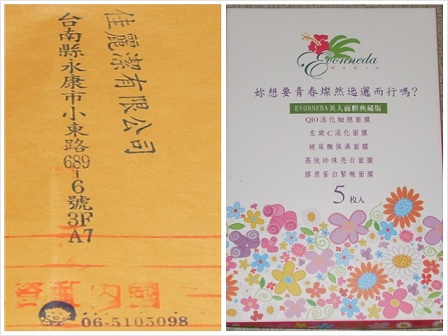 佳麗潔有限公司
台南縣永康市小東路
689-6號
3F
A7
06-5105098
Evonneda
妳想要青春燦然迤邐而行嗎?
EVONNEDA美人面膜典藏版
Q10活化細胞面膜
左旋C淡化面膜
玻尿酸保濕面膜
高效珍珠亮白面膜
膠原蛋白緊緻面膜
5枚入